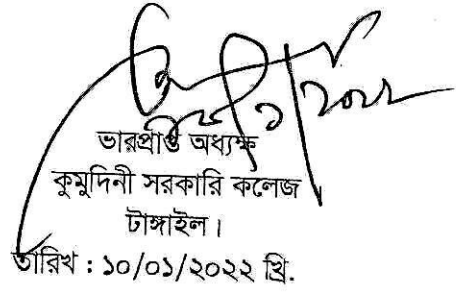 ভারপ্রাপ্ত অধ্যক্ষ
কুমুদিনী সরকারি কলেজ
টাঙ্গাইল।
তারিখ : ১০/০১/২০২২ খ্রি.